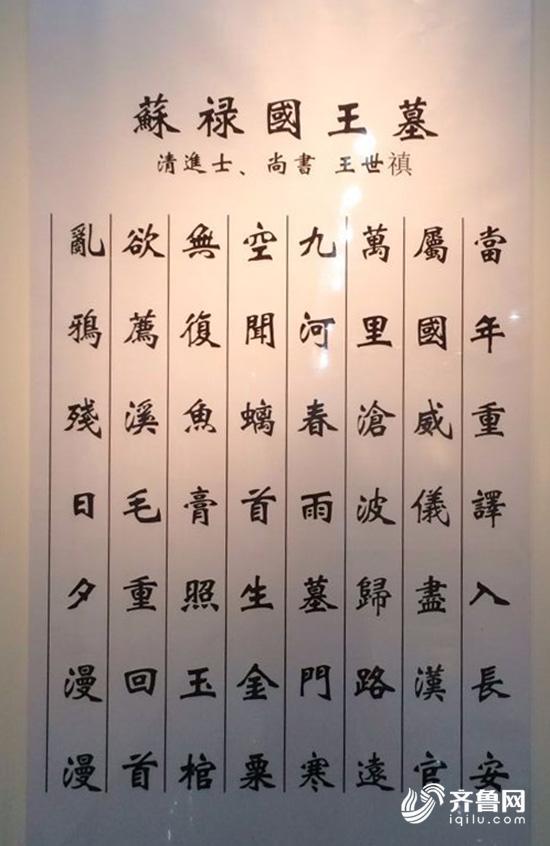 蘇禄國王墓
清進士、尚書 王世禛
當年重譯入長安
屬國威儀盡漢官
萬里滄波歸路遠
九河春雨墓門寒
空聞螭首生金粟
無復魚膏照玉棺
欲薦溪毛重回首
亂鴉殘日夕漫漫
齐鲁网
iqilu.com